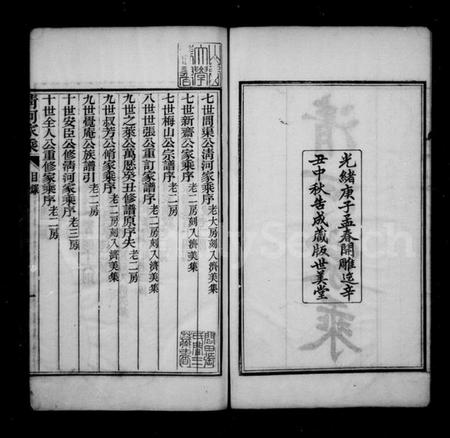 光緒庚子孟春開雕迄辛
丑中秋告成藏版世美堂
七世間渠公清河家乘序 老大房刻入濟美集
七世新齋公家乘序 老二房刻入濟美集
七世梅山公宗譜序 老二房
八世世張公重訂家譜序 老二房刻入濟美集
九世之萊公萬厯癸丑修譜原序失 老二房
九世叔芳公脩家乘序 老二房刻入濟美集
九世覺庵公族譜引 老二房
十世安臣公修清河家乘序 老三房
十世全人公重修家乘序 老二房
清河家乘
目錄